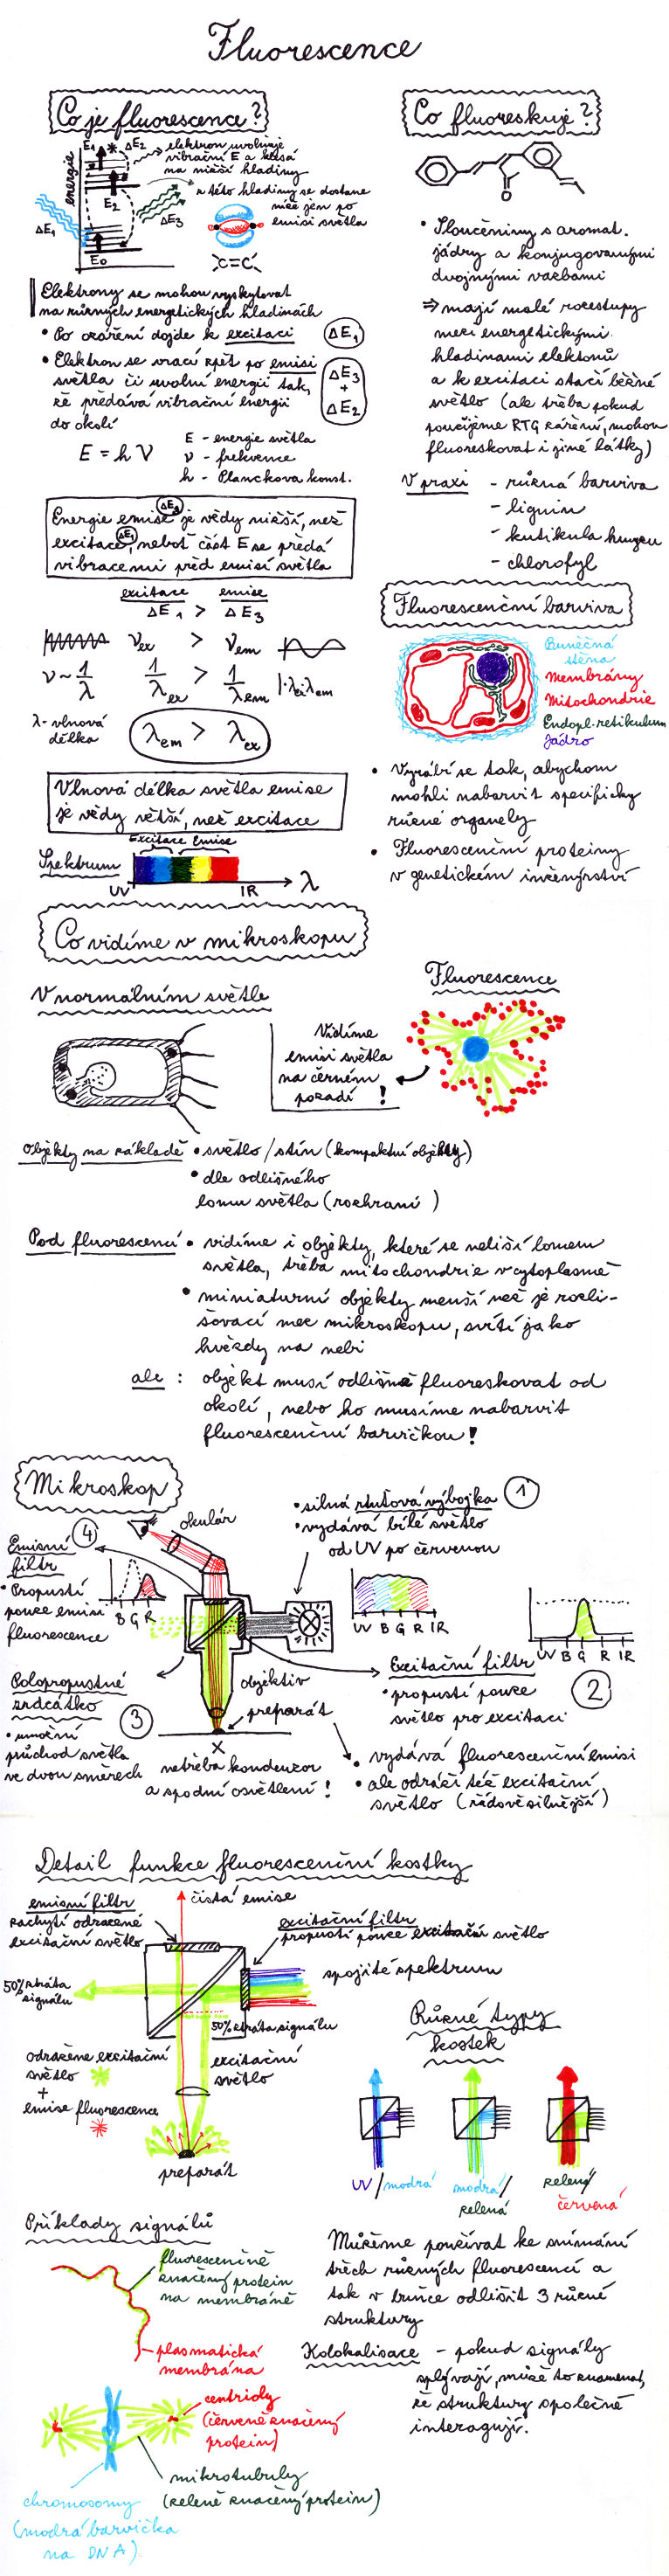 Fluorescence
Co je fluorescence?
E1 * ΔE2
energie
E2
ΔE1
ΔE3
E0
elektron uvolňuje
vibrační E a klesá
na nižší hladiny
z této hladiny se dostane
níže jen po
emisi světla
C=C
Elektrony se mohou vyskytovat
na různých energetických hladinách
• Po ozáření dojde k excitaci
ΔE1
• Elektron se vrací zpět po emisi
světla či uvolní energii tak,
že předává vibrační energii
do okolí
ΔE3
+
ΔE2
E = h ν
E - energie světla
ν - frekvence
h - Planckova konst.
ΔE3
Energie emise je vždy nižší, než
ΔE1
excitace, neboť část E se předá
vibracemi před emisí světla
excitace emise
ΔE1 > ΔE3
νex > νem
ν ~ 1/λ 1/λex > 1/λem |·λex·λem
λ - vlnová
délka
λem > λex
Vlnová délka světla emise
je vždy větší, než excitace
Excitace Emise
Spektrum
UV IR λ
Co fluoreskuje?
O
• Sloučeniny s aromat.
jádry a konjugovanými
dvojnými vazbami
⇒ mají malé rozestupy
mezi energetickými
hladinami elektonů
a k excitaci stačí běžné
světlo (ale třeba pokud
použijeme RTG záření, mohou
fluoreskovat i jiné látky)
V praxi - různá barviva
- lignin
- kutikula hmyzu
- chlorofyl
Fluorescenční barviva
Buněčná
stěna
Membrány
Mitochondrie
Endopl. retikulum
Jádro
• Vyrábí se tak, abychom
mohli nabarvit specificky
různé organely
• Fluorescenční proteiny
v genetickém inženýrství
Co vidíme v mikroskopu
V normálním světle
Fluorescence
Vidíme
emisi světla
na černém
pozadí !
Objekty na základě • světlo/stín (kompaktní objekty)
• dle odlišného
lomu světla (rozhraní)
Pod fluorescencí • vidíme i objekty, které se neliší lomem
světla, třeba mitochondrie v cytoplasmě
• miniaturní objekty menší než je rozli-
šovací mez mikroskopu, svítí jako
hvězdy na nebi
ale : objekt musí odlišně fluoreskovat od
okolí, nebo ho musíme nabarvit
fluorescenční barvičkou!
Mikroskop
okulár
1
• silná rtuťová výbojka
• vydává bílé světlo
od UV po červenou
4
Emisní
filtr
• Propustí
pouze emisi
fluorescence
B G R
UV B G R IR
UV B G R IR
Excitační filtr
• propustí pouze
světlo pro excitaci
2
Polopropustné
zrdcátko
• umožní
průchod světla
ve dvou směrech
3
objektiv
preparát
X
netřeba kondenzor
a spodní osvětlení!
• vydává fluorescenční emisi
• ale odráží též excitační
světlo (řádově silnější)
Detail funkce fluorescenční kostky
emisní filtr
zachytí odrazené
excitační světlo
čistá emise
excitační filtr
propustí pouze excitační světlo
50% ztráta
signálu
spojité spektrum
50% ztráta signálu
odražené excitační
světlo
+
emise fluorescence
excitační
světlo
preparát
Různé typy
kostek
UV/modrá
modrá/
zelená
zelená/
červená
Příklady signálů
fluorescenčně
značený protein
na membráně
plasmatická
membrána
centrioly
(červeně značený
protein)
mikrotubuly
(zeleně značený protein)
chromosomy
(modrá barvička
na DNA)
Můžeme používat ke snímání
třech různých fluorescencí a
tak v buňce odlišit 3 různé
struktury
Kolokalisace - pokud signály
splývají, může to znamenat,
že struktury společně
interagují.